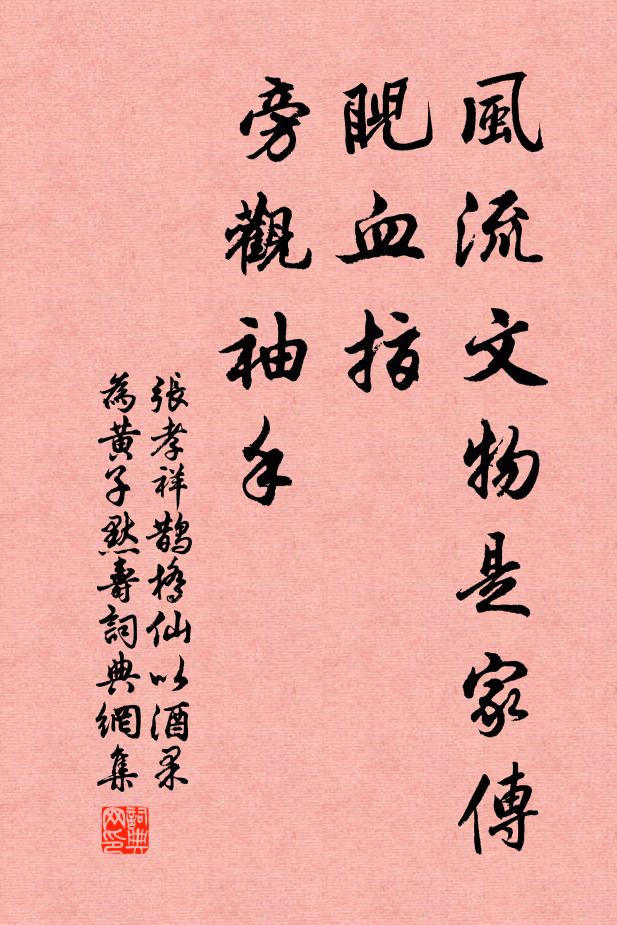 風流文物是家傳
睨血指
旁觀袖手
張孝祥鵲橋仙以酒果
為黃子默壽詞典網集
詞典
网印